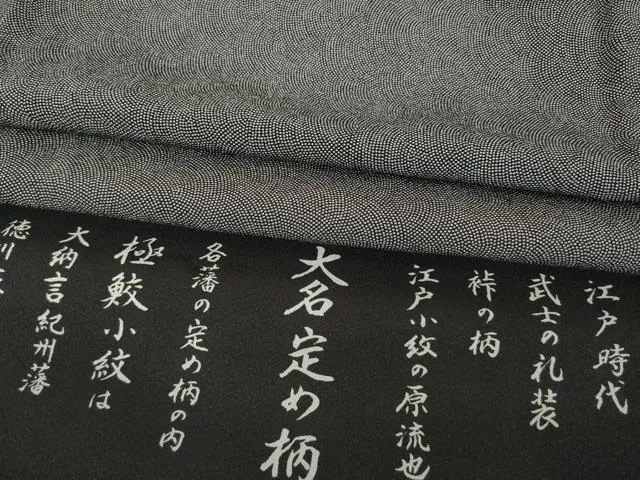 江戸時代
武士の礼装
裃の柄
江戸小紋の原流也
大名定め柄
各藩の定め柄の内
極鮫小紋は
大納言紀州藩
徳川